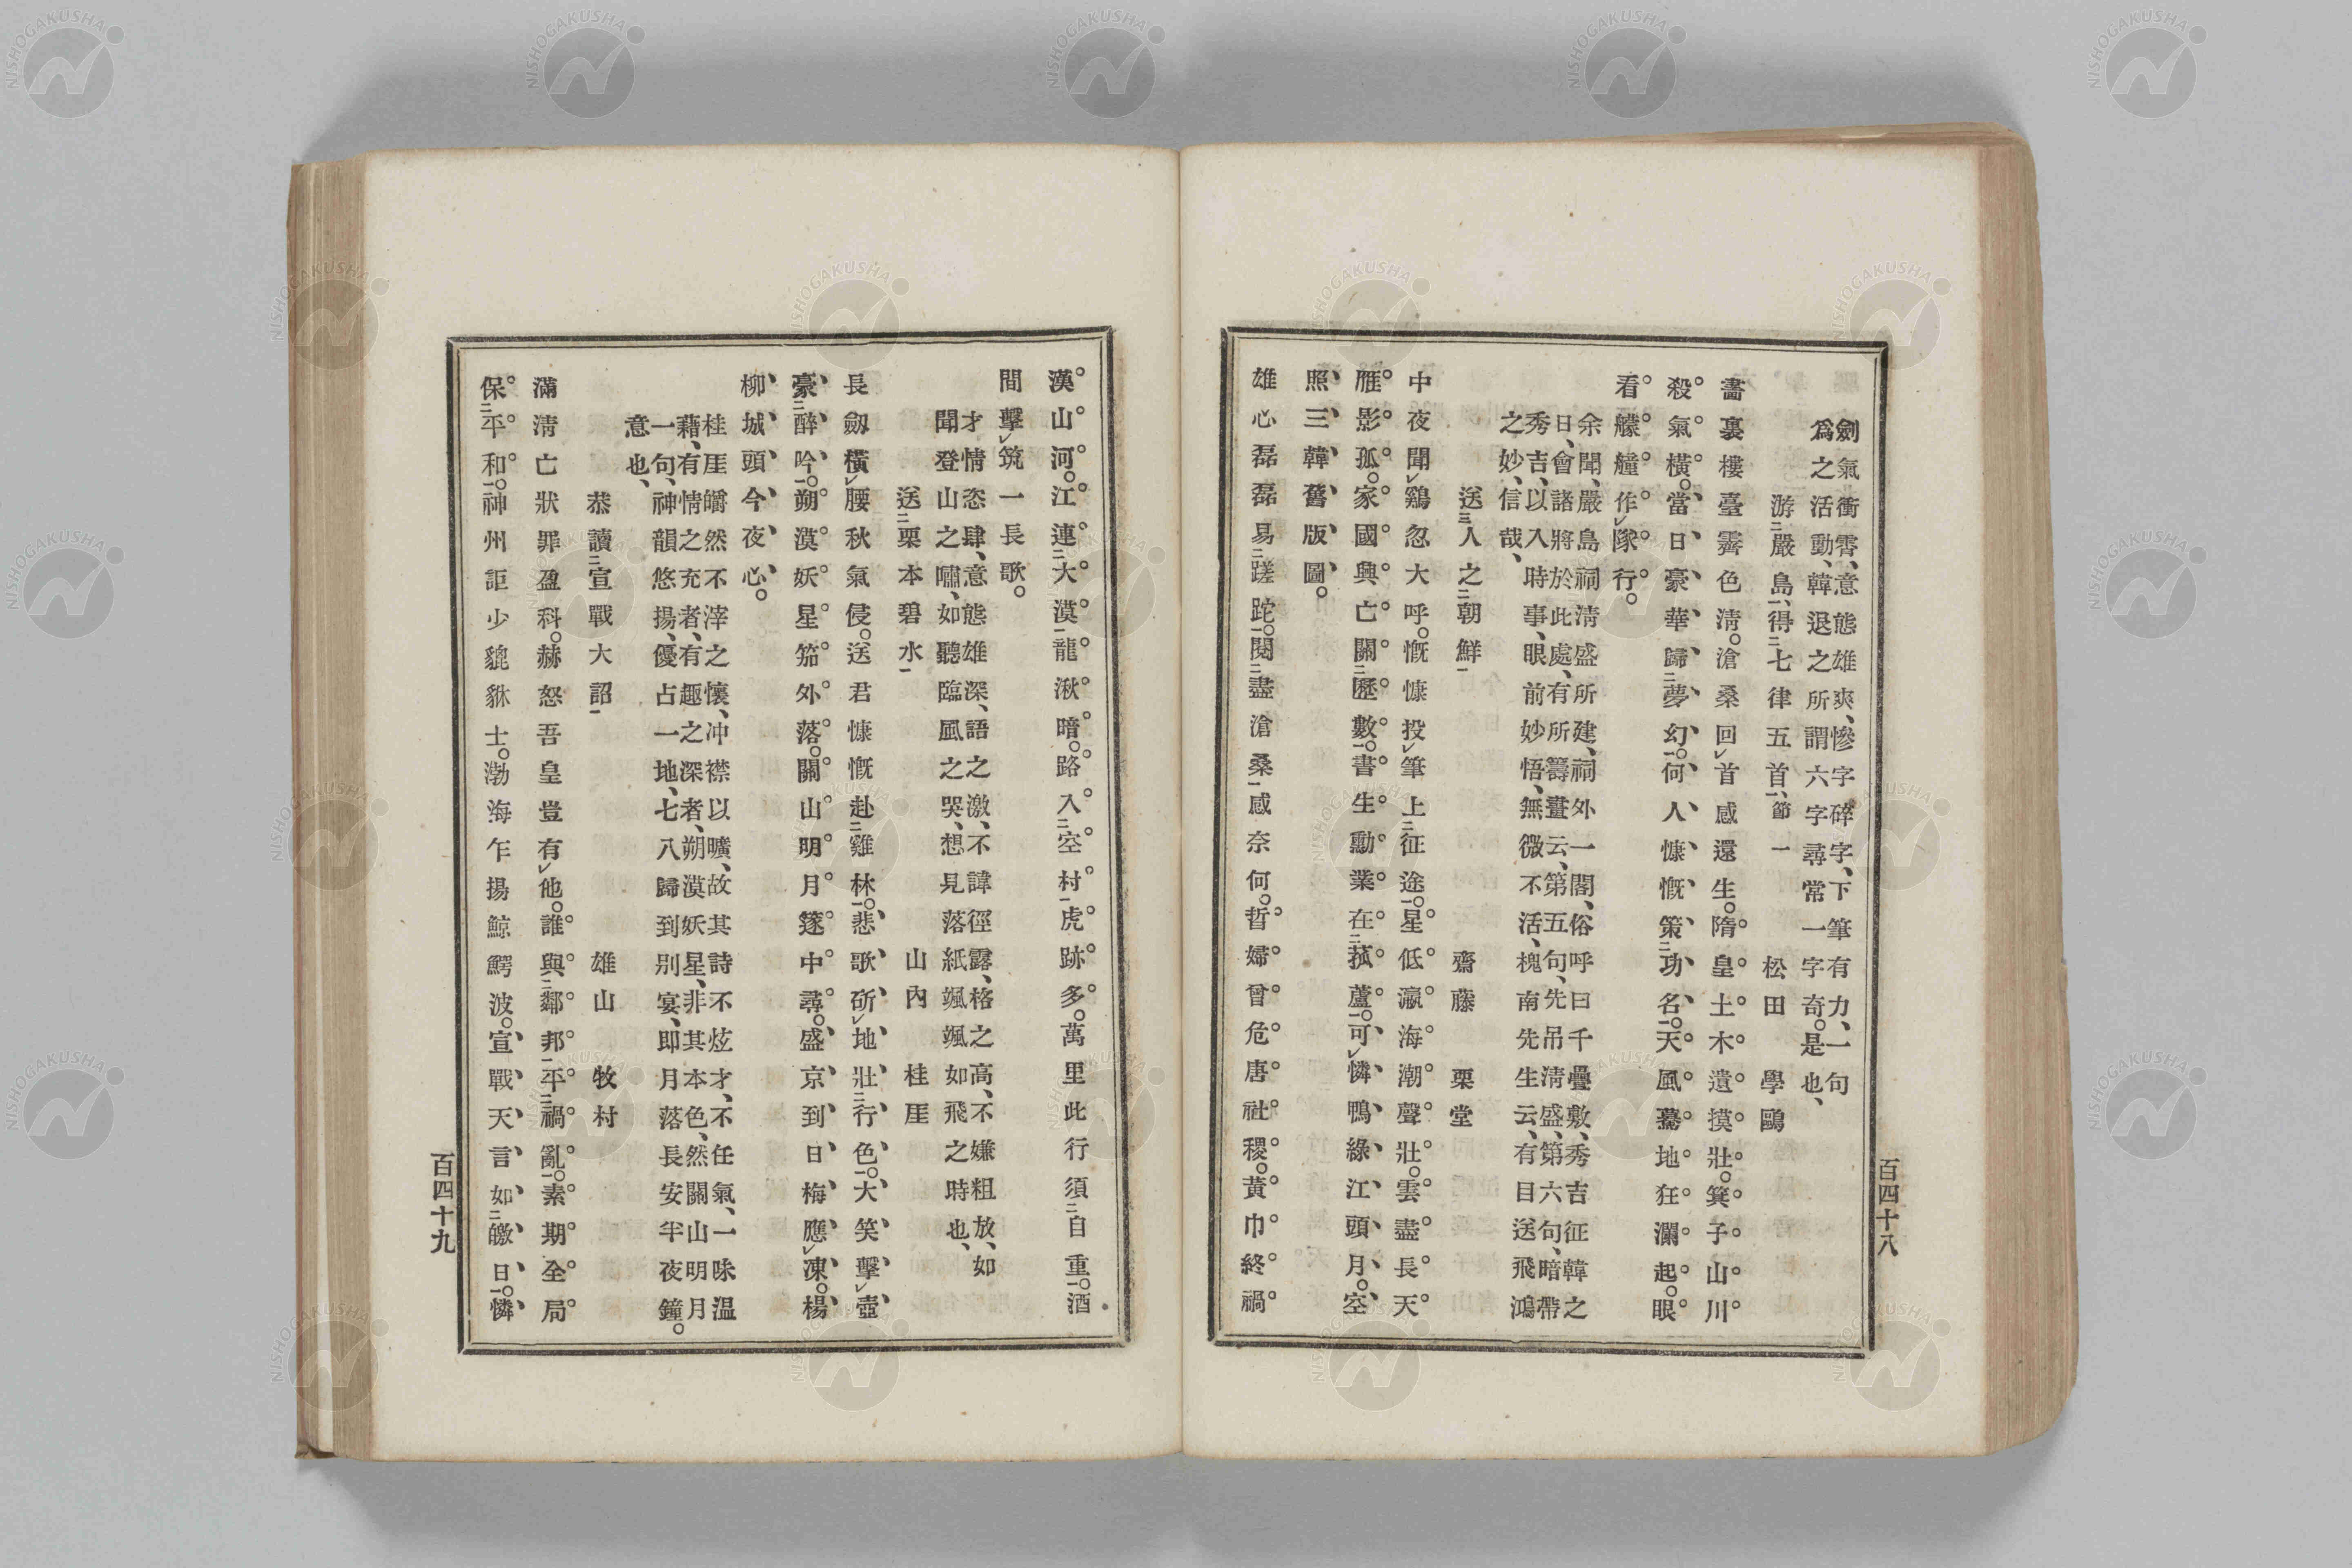 劍氣衝霄、意態雄爽、慘字碎字、下筆有力、一句
爲之活動、韓退之所謂六字尋常一字奇。是也、
游嚴島、得七律五首、節一 松田學鷗
畵裏樓臺霽色淸。滄桑回首感還生。隋皇土木遺摸壯。箕子山川
殺氣橫。當日豪華歸夢幻。何人慷慨策功名。天風驀地狂瀾起。眼
看艨艟作隊行。
余聞、嚴島祠淸盛所建、祠外一閣、俗呼曰千疊敷、秀吉征韓之
日、會諸將於此處、有所籌畫云、第五句、先吊淸盛、第六句、暗帶
秀吉、以入時事、眼前妙悟、無微不活、槐南先生云、有目送飛鴻
之妙、信哉、
送人之朝鮮 齋藤栗堂
中夜聞鷄忽大呼。慨慷投筆上征途。星低瀛海潮聲壯。雲盡長天
雁影孤。家國興亡關歷數。書生勳業在菰蘆。可憐鴨綠江頭月。空
照三韓舊版圖。
雄心磊磊易蹉跎。閱盡滄桑感奈何。哲婦曾危唐社稷。黃巾終禍
百四十八
漢山河。江連大漠龍湫暗。路入空村虎跡多。萬里此行須自重。酒
間擊筑一長歌。
才情恣肆、意態雄深、語之激、不諱徑露、格之高、不嫌粗放、如
聞登山之嘯、如聽臨風之哭、想見落紙颯颯如飛之時也、
送栗本碧水 山內桂厓
長劔橫腰秋氣侵。送君慷慨赴雞林。悲歌斫地壯行色。大笑擊壺
豪醉吟。朔漠妖星笳外落。關山明月篴中尋。盛京到日梅應凍。楊
柳城頭今夜心。
桂厓皭然不滓之懷、冲襟以曠、故其詩不炫才、不任氣、一味溫
藉、有情之充者、有趣之深者、朔漠妖星、非其本色、然關山明月
一句、神韻悠揚、優占一地、七八歸到別宴、卽月落長安半夜鐘。
意也、
恭讀宣戰大詔 雄山牧村
滿淸亡狀罪盈科。赫怒吾皇豈有他。誰與鄰邦平禍亂。素期全局
保平和。神州詎少貔貅士。渤海乍揚鯨鰐波。宣戰天言如皦日。憐
百四十九